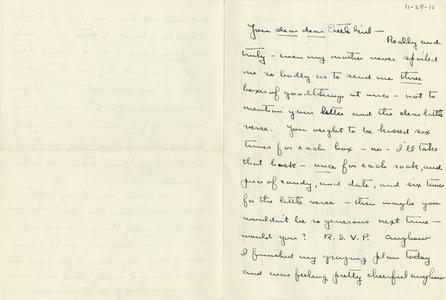 11-29-11
You dear dear little kid —
Really and
truly — even my mother never spoiled
me so badly as to send me three
boxes of good things at once — not to
mention your letter and the dear little
verse. You ought to be kissed six
times for each box — no — I'll take
that back — once for each rock, and
piece of candy, and date, and six times
for the little verse — then maybe you
wouldn't be so generous next time —
would you? R.S.V.P. Anyhow
I finished my grazing plan today
and was feeling pretty cheerful anyhow